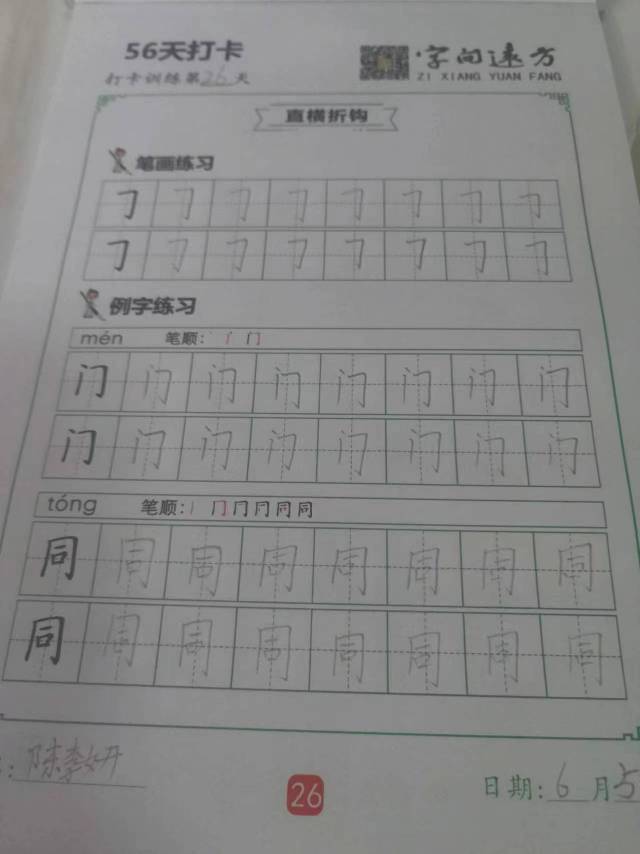 56天打卡
打卡训练第26天
字间速方
ZI XIANG YUAN FANG
直横折钩
笔画练习
㇆ ㇆ ㇆ ㇆ ㇆ ㇆ ㇆ ㇆
㇆ ㇆ ㇆ ㇆ ㇆ ㇆ ㇆ ㇆
例字练习
mén 笔顺: 丶 门
门 门 门 门 门 门 门 门
门 门 门 门 门 门 门 门
tóng 笔顺: 丨 冂 冂 同 同
同 同 同 同 同 同 同 同
同 同 同 同 同 同 同 同
: 陈李妍
26
日期: 6 月 5